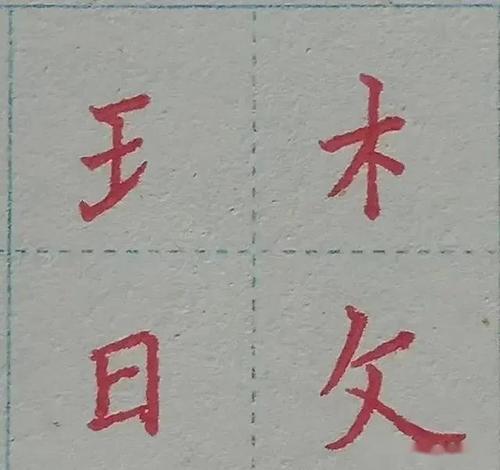 王 木
日 攵